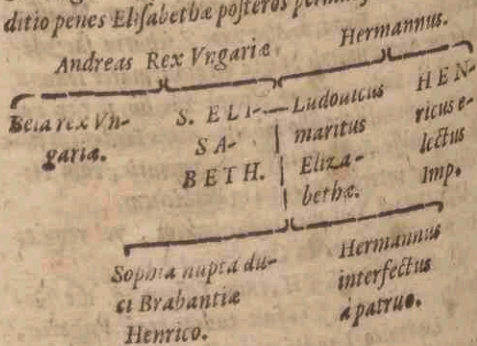 ditio penes Elisabethæ posteros
Andreas Rex Vngariæ
Hermannus.
Bela rex Vn-
gariæ.
S. ELI-
SA-
BETH.
Ludouicus
maritus
Eliza-
bethæ.
HEN-
ricus e-
lectus
Imp.
Sophia nupta du-
ci Brabantiæ
Henrico.
Hermannus
interfectus
à patruo.